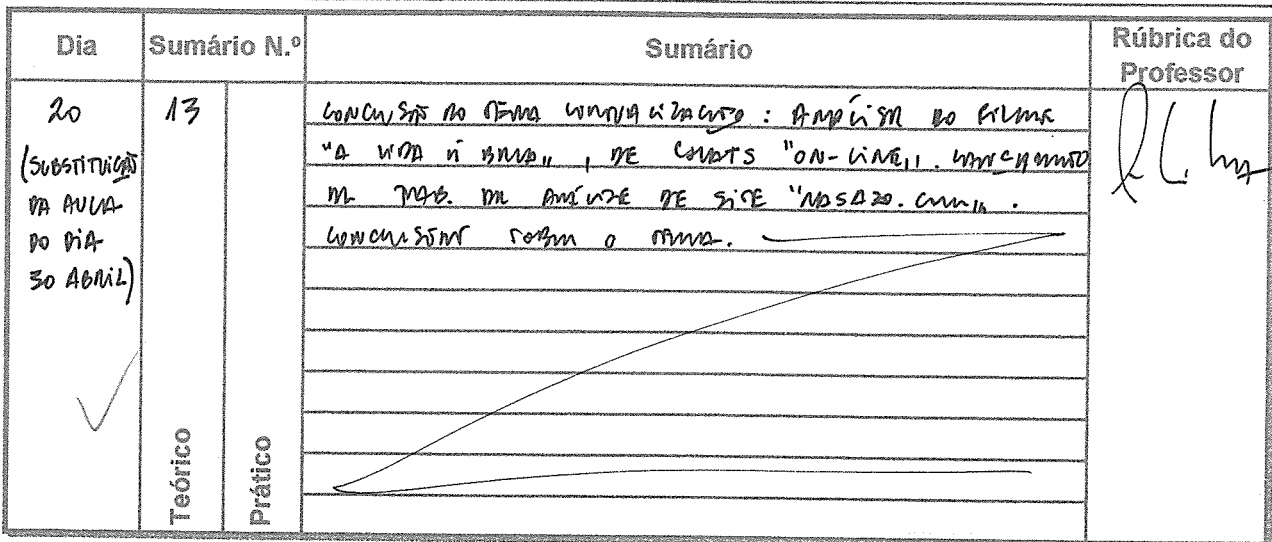 Dia
Sumário N.º
Sumário
Rúbrica do
Professor
20
(SUBSTITUIÇÃO
DA AULA
DO DIA
30 ABRIL)
13
Teórico
Prático
CONCLUSÃO DO TEMA : ANÁLISE DO FILME
"A VIDA É BELA", DE CHATS "ON-LINE". LANÇAMENTO
DE TRAB. DE ANÁLISE DE SITE
CONCLUSÕES SOBRE O TEMA.